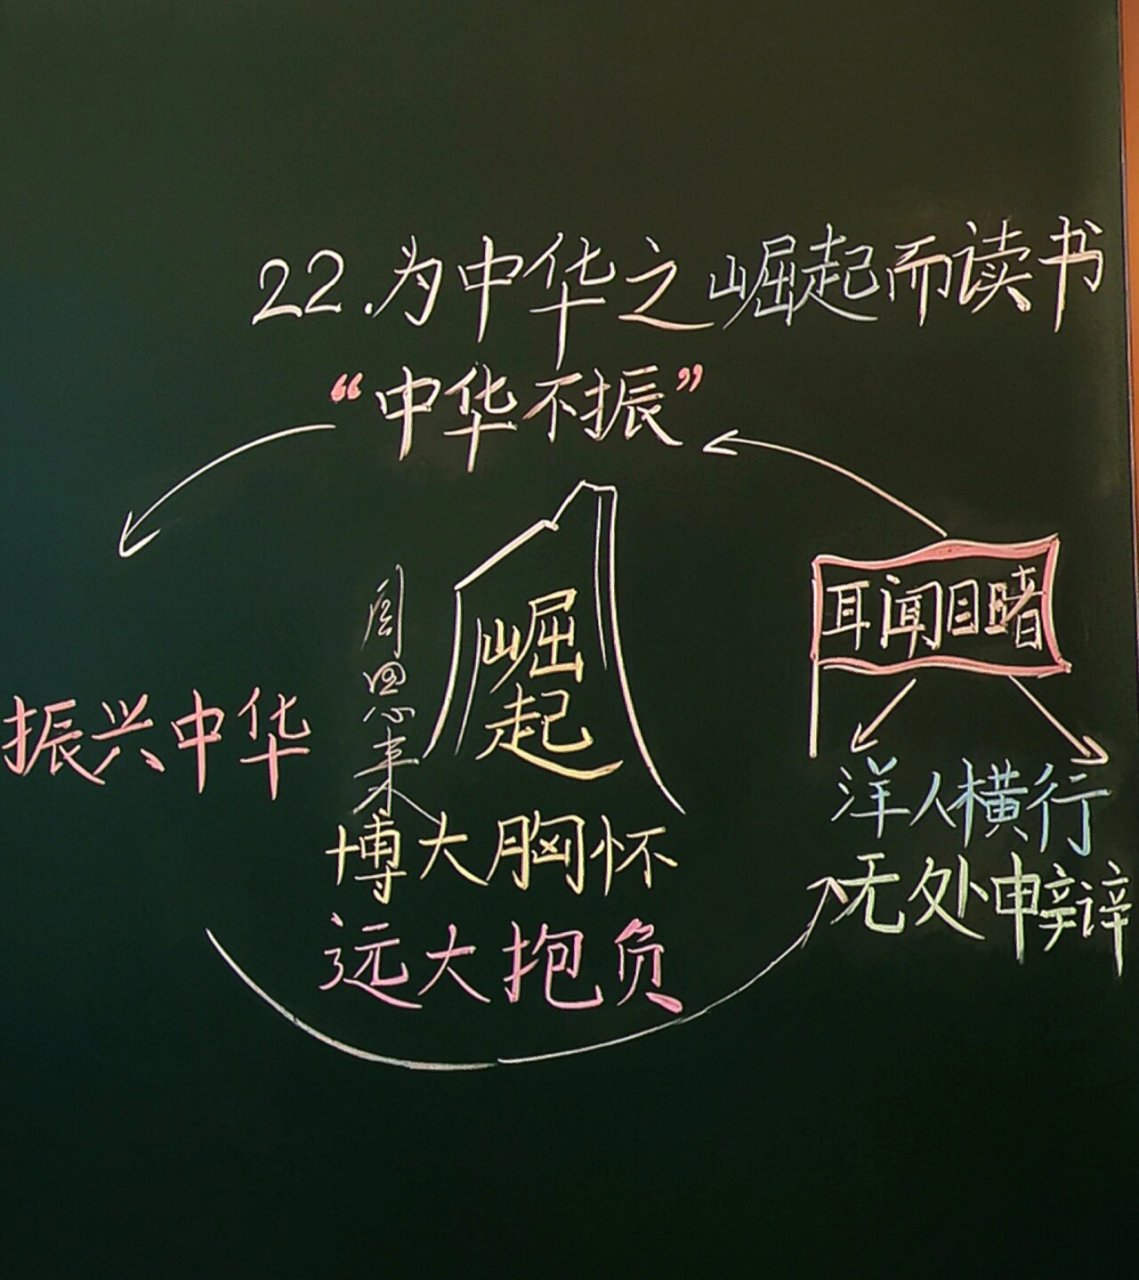 22.为中华之崛起而读书
“中华不振”
耳闻目睹
洋人横行
无处申辩
振兴中华
周恩来
崛起
博大胸怀
远大抱负